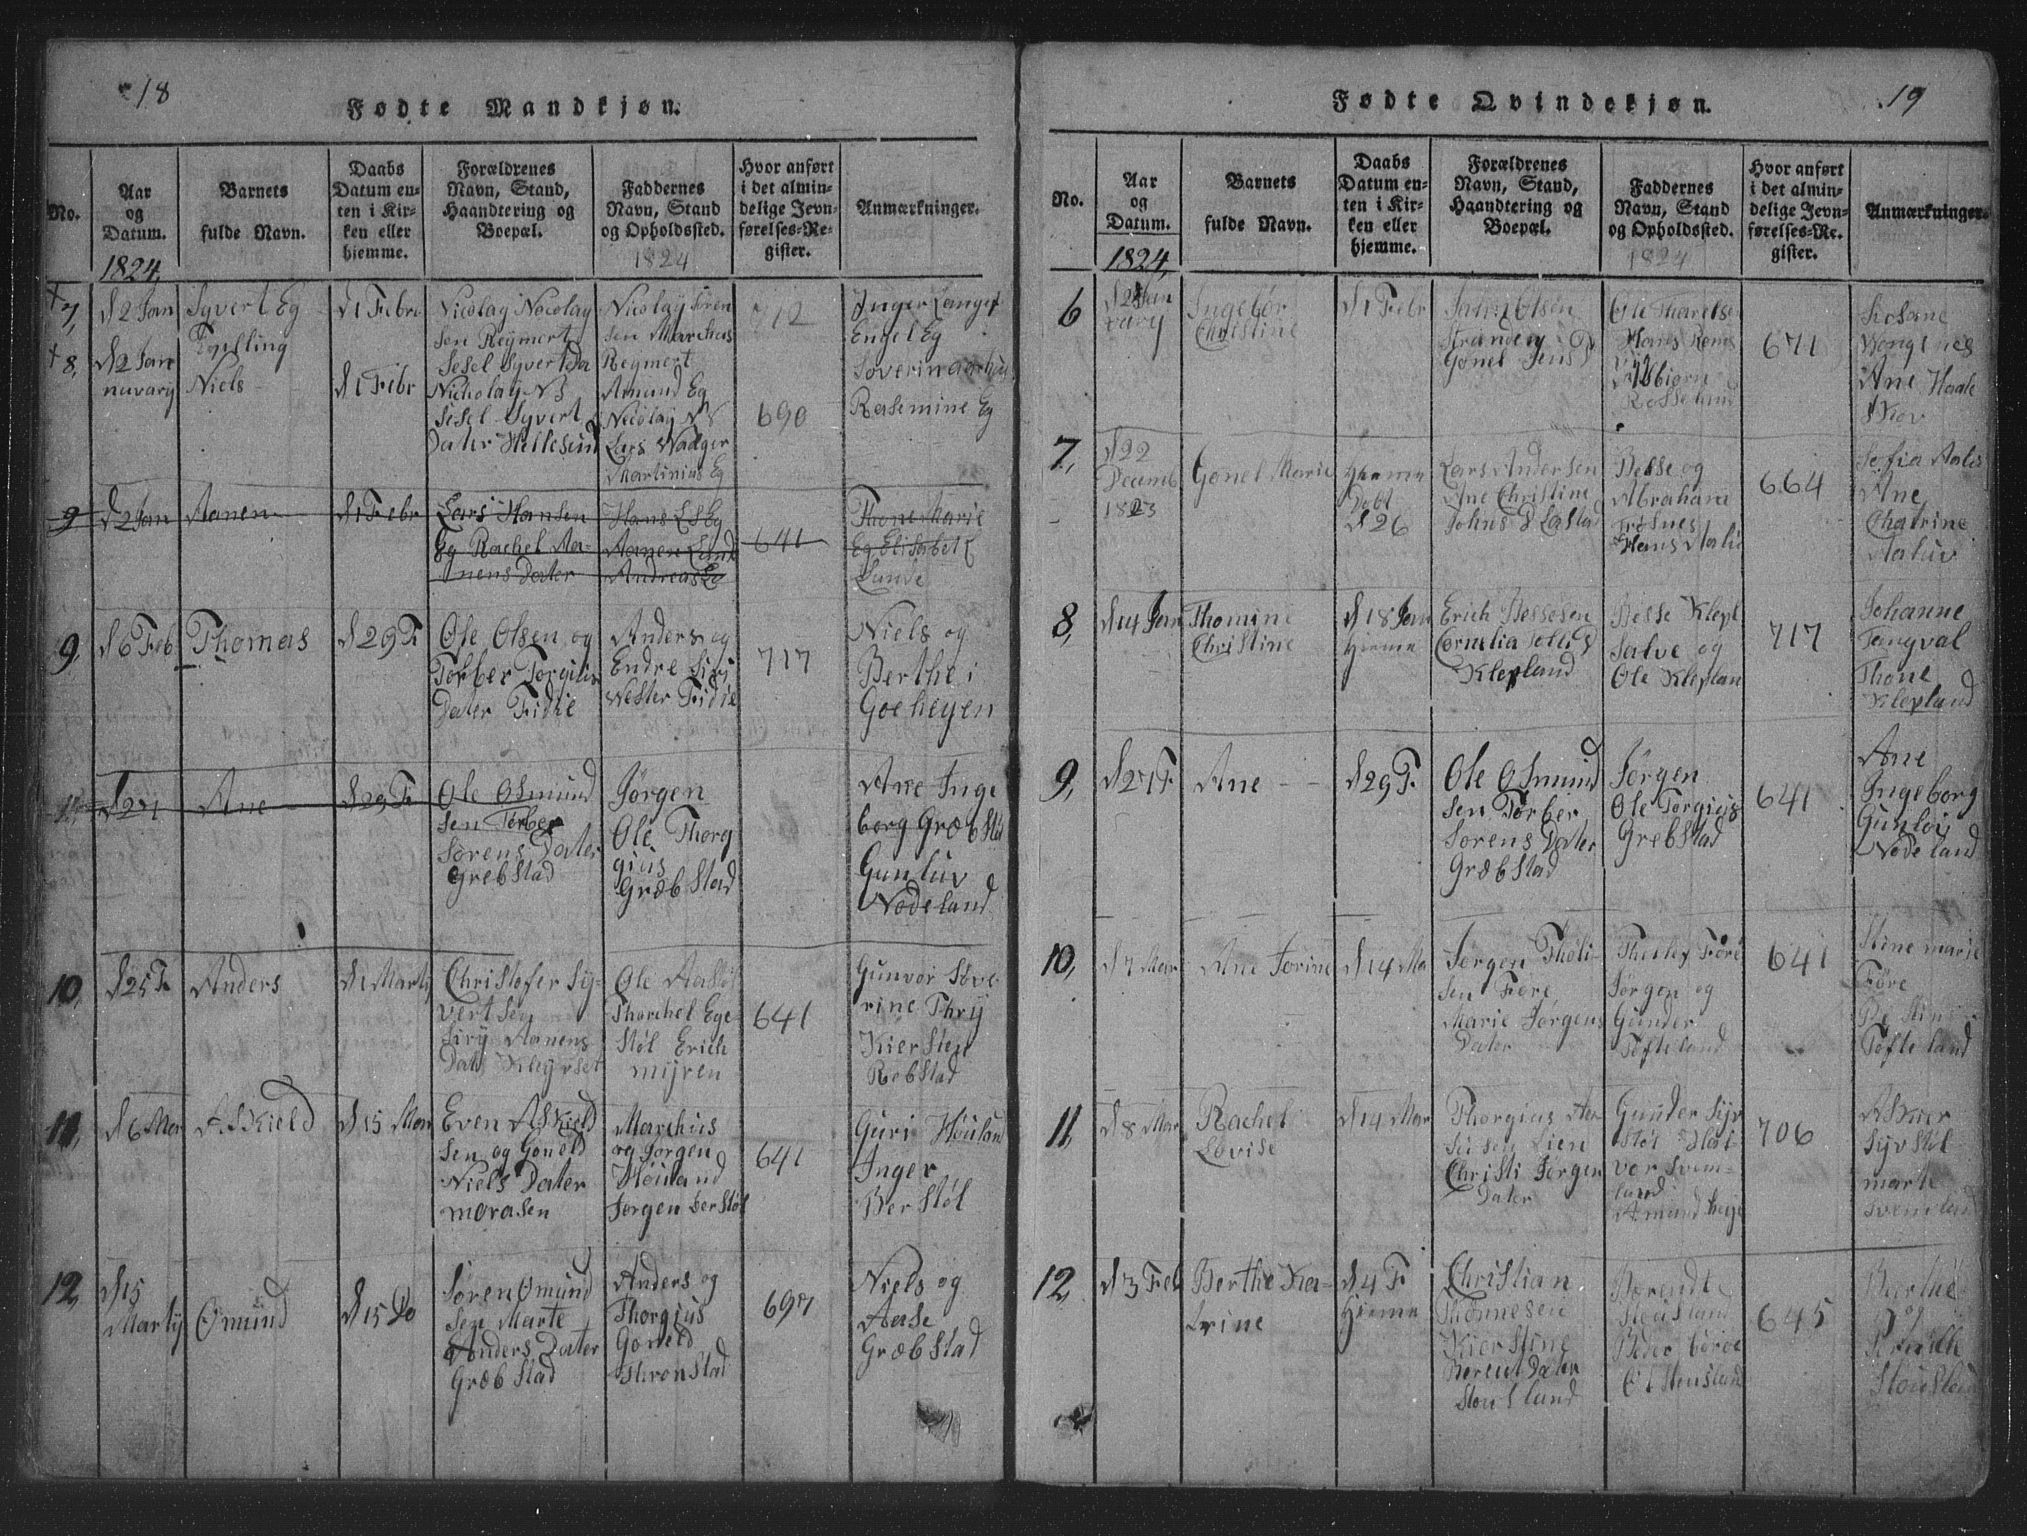 18
Fødte Mandkjøn.
No.
Aar
og
Datum.
1824
Barnets
fulde Navn.
Daabs
Datum en-
ten i Kir-
ken eller
hjemme.
Forældrenes
Navn, Stand,
Haandtering og
Boepæl.
Faddernes
Navn, Stand
og Opholdssted.
1824
Hvor anført
i det almin-
delige Jevn-
førelses-Re-
gister.
Anmærkninger.
+7,
d 2 Jan
Syvert Eg
Tvilling
d 1 Febr
Nicolay Nocolay
sen Reymert
Sesel Syvert Da
Nicolay Sören
sen Marchus
Reymert
712
Inger Langef
Engel Eg
+8,
d 2 Jan
nuvary
Niels
d 1 Febr
Nicholay NS
Sesel Syvert
Dater Hillesund
Amund Eg
Nicolay NS
Lars Nadger
Martinius Eg
690
Soverin
Rasmine Eg
9
d 2 Jan
Aanen
d 1 Febr
Lars Hansen
Eg Rachel Aa-
nens Dater
Hans LS Eg
Aanen Lund
Andreas Eg
641
Thone Marie
Eg Elisabet L
Lunde
9,
d 6 Feb
Thomas
d 29 F
Ole Olsen og
Torber Torgius
Dater Fidie
Anders og
Endre Sigj
Nester Fidie
717
Niels og
Berthe i
Goeheyen
11
d 27
Ane
d 29 F
Ole Osmund
sen Torber
Sørens Dater
Grebstad
Jørgen
Ole Thorg
gius
Græbstad
Ane Inge
borg Græbstad
Gunluv
Nodeland
10,
d 25 F
Anders
d 1 Martj
Christofer Sy-
vertsen
Siry Aanens
Dat Kleyvset
Ole Aasøl
Thorchel Ege-
støl Erich
mijren
641
Gunvor Seve-
rine Thry
Kiersten
Robstad
11,
d 6 Mar
Askield
d 15 Mar
Even Askield
sen og Goneld
Niels Dater
morasen
Marchus
og Jorgen
Høiland
Jørgen Berstøl
641
Guri Høulan
Inger
Berstøl
12,
d 15
Martij
Omund
d 15 Do
Søren Omund
sen Marte
Anders Dater
Græbstad
Anders og
Thorgius
Goneld
Stronstad
697
Niels og
Aase
Græbstad
19
Fødte Qvindekjøn.
No.
Aar
og
Datum.
1824,
Barnets
fulde Navn.
Daabs
Datum en-
ten i Kir-
ken eller
hjemme.
Forældrenes
Navn, Stand,
Haandtering og
Boepæl.
Faddernes
Navn, Stand
og Opholdssted.
1824
Hvor anført
i det almin-
delige Jevn-
førelses-Re-
gister.
Anmærkninger.
6
d 2 Jan
vary
Ingebör
Christine
d 1 Febr
Olsen
Gonel Jens D
Ole Tharelsen
Hans
Rosseland
671
Ane Haale
Skov
7,
d 22
Decemb
1823
Gonel Marie
Hiemme
Dobt
d 26
Lars Andersen
Ane Christine
Johns D Lastad
Besse og
Abraham
Frøsnes
Hans Aaluv
664
Sofia Aalu
Ane
Chatrine
Aaluv
8,
d 14 Jan
Thomine
Christine
d 18 Jan
Hieme
Erich Bessesen
Cornelia
Klepland
Besse Klepl
Salve og
Ole Kleplan
717
Johanne
Tangval
Thone
Klepland
9,
d 27 F
Ane - -
d 29 F
Ole Osmund
sen Torber
Sørens Dater
Græbstad
Jørgen
Ole Torgius
Grebstad
641
Ane
Ingeborg
Gunlov
Nodeland
10,
d 7 Mar
Ane Jorine
d 14 Ma
Jørgen Thöli-
sen Føre
Marie Jørgens
Dater
Føre
Jørgen og
Gunder
Tofteland
641
Stine marie
Føre
Tofteland
11,
d 8 Mar
Rachel
Lovise
d 14 Mar
Thorgius Aa-
sisen Lien
Christi Jørgen
Dater
Gunder Syv
støl Hal-
vor Svem-
land
Amund
706
Asber
Syvstøl
marte
Svemeland
12,
d 3 Feb
Berthe Ka-
trine
d 4 F
Hieme
Christian
Thönnesen
Kierstine
Berent Dater
Stousland
Berendt
Stousland
Peder Börre
O Stousland
645
Berthe
og
Pernille
Stousland